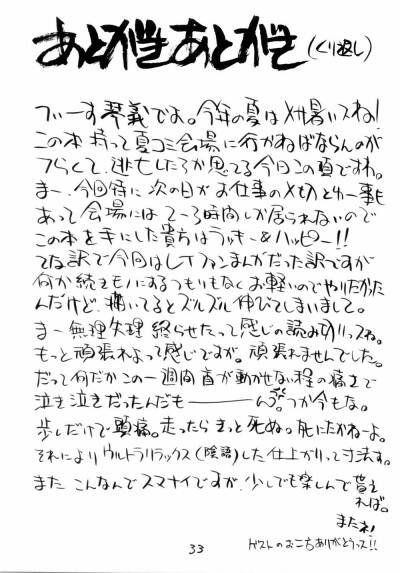 あとがきあとがき(くり返し)
ういーす琴義でよ。今年の夏はメサ暑いスね!
この本持って夏コミ会場に行かねばならんのが
フらくて、逃亡したろか思てる今日この頃ですわ。
まー、今回特に次の日がお仕事の〆切とか一事も
あって会場には2〜3時間しか居られないので
この本を手にした貴方はラッキー&ハッピー!!
てな訳で今回はLTファンまんがだった訳ですが
何か続きモノにするつもりもなくお軽いのでやりたかった
んだけど、描いてるとズルズル伸びてしまいまして。
まー無理矢理終らせたって感じの読み切りっスね。
もっと頑張れよって感じですが。頑張れませんでした。
だって何だかこの一週間首が動かせない程の痛さで
泣き泣きだったんだも―――ん。つか今もな。
歩くだけで頭痛。走ったらきっと死ぬ。死にたかねーよ。
それによりウルトラリラックス(陰語)した仕上がりって寸法す。
また こんなんでスマナイですが、少しでも楽しんで貰え
れば。
またね!
ゲストのお二方ありがとうっス!!
33